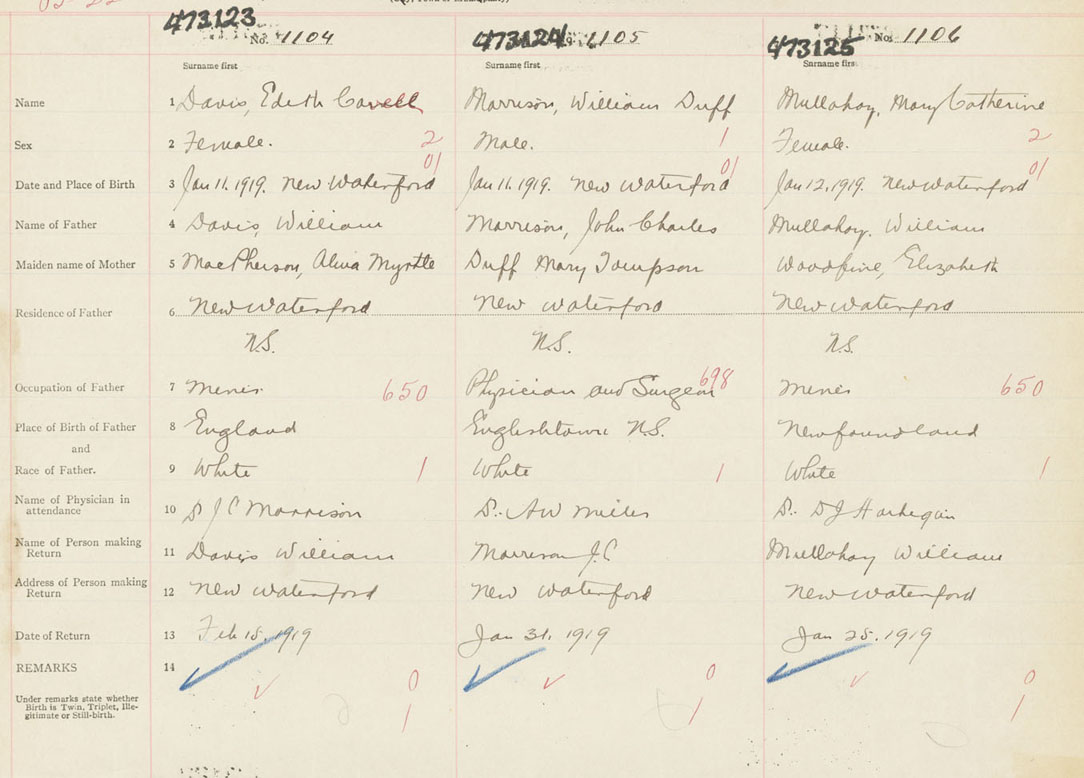 473123 473124 473125
No. 1104 1105 No. 1106
Surname first Surname first Surname first
Name 1 Davis, Edith Cavell Morrison, William Duff Mullahoy, Mary Catherine
Sex 2 Female. 2 Male. 1 Female. 2
01 01 01
Date and Place of Birth 3 Jan 11. 1919. New Waterford Jan 11. 1919. New Waterford Jan 12, 1919. New Waterford
Name of Father 4 Davis, William Morrison, John Charles Mullahoy, William
Maiden name of Mother 5 MacPherson, Myrtle Duff Mary Tompson Woodfine, Elizabeth
Residence of Father 6 New Waterford New Waterford New Waterford
N.S. N.S. N.S.
Occupation of Father 7 Miner 650 Physician and Surgeon 698 Miner 650
Place of Birth of Father 8 England Englishtown N.S. Newfoundland
and
Race of Father. 9 White 1 White 1 White 1
Name of Physician in
attendance 10 Dr J C Morrison Dr. AW Miller Dr. DJ Hartigan
Name of Person making
Return 11 Davis William Morrison J.C Mullahoy William
Address of Person making
Return 12 New Waterford New Waterford New Waterford
Date of Return 13 Feb 15. 1919 Jan 31. 1919 Jan 25. 1919
REMARKS 14
0 0 0
Under remarks state whether
Birth is Twin, Triplet, Ille-
gitimate or Still-birth. 1 1 1